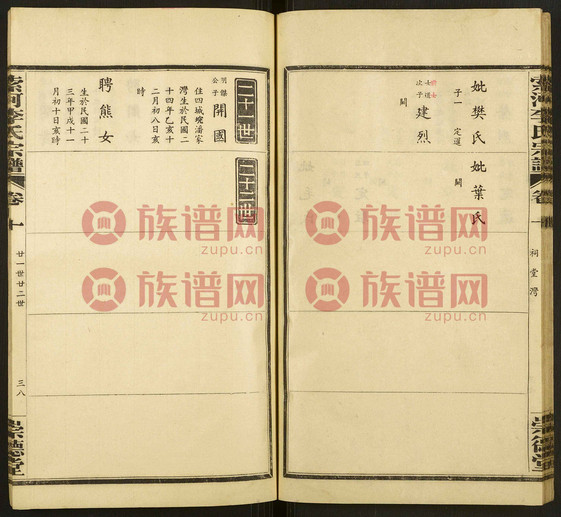 索河李氏宗譜
卷十
祠堂灣
崇德堂
妣樊氏
子一 定選
妣葉氏
闕
次子
建烈
闕
二十一世
二十二世
明傑公子
開國
住四城畹潘家
灣生於民國二
十四年乙亥十
二月初八日亥
時
聘熊女
生於民國二十
三年甲戌十一
月初十日亥時
索河李氏宗譜
卷十
廿一世廿二世
三八
崇德堂
族谱网
zupu.cn
族谱网
zupu.cn
族谱网
zupu.cn
族谱网
zupu.cn